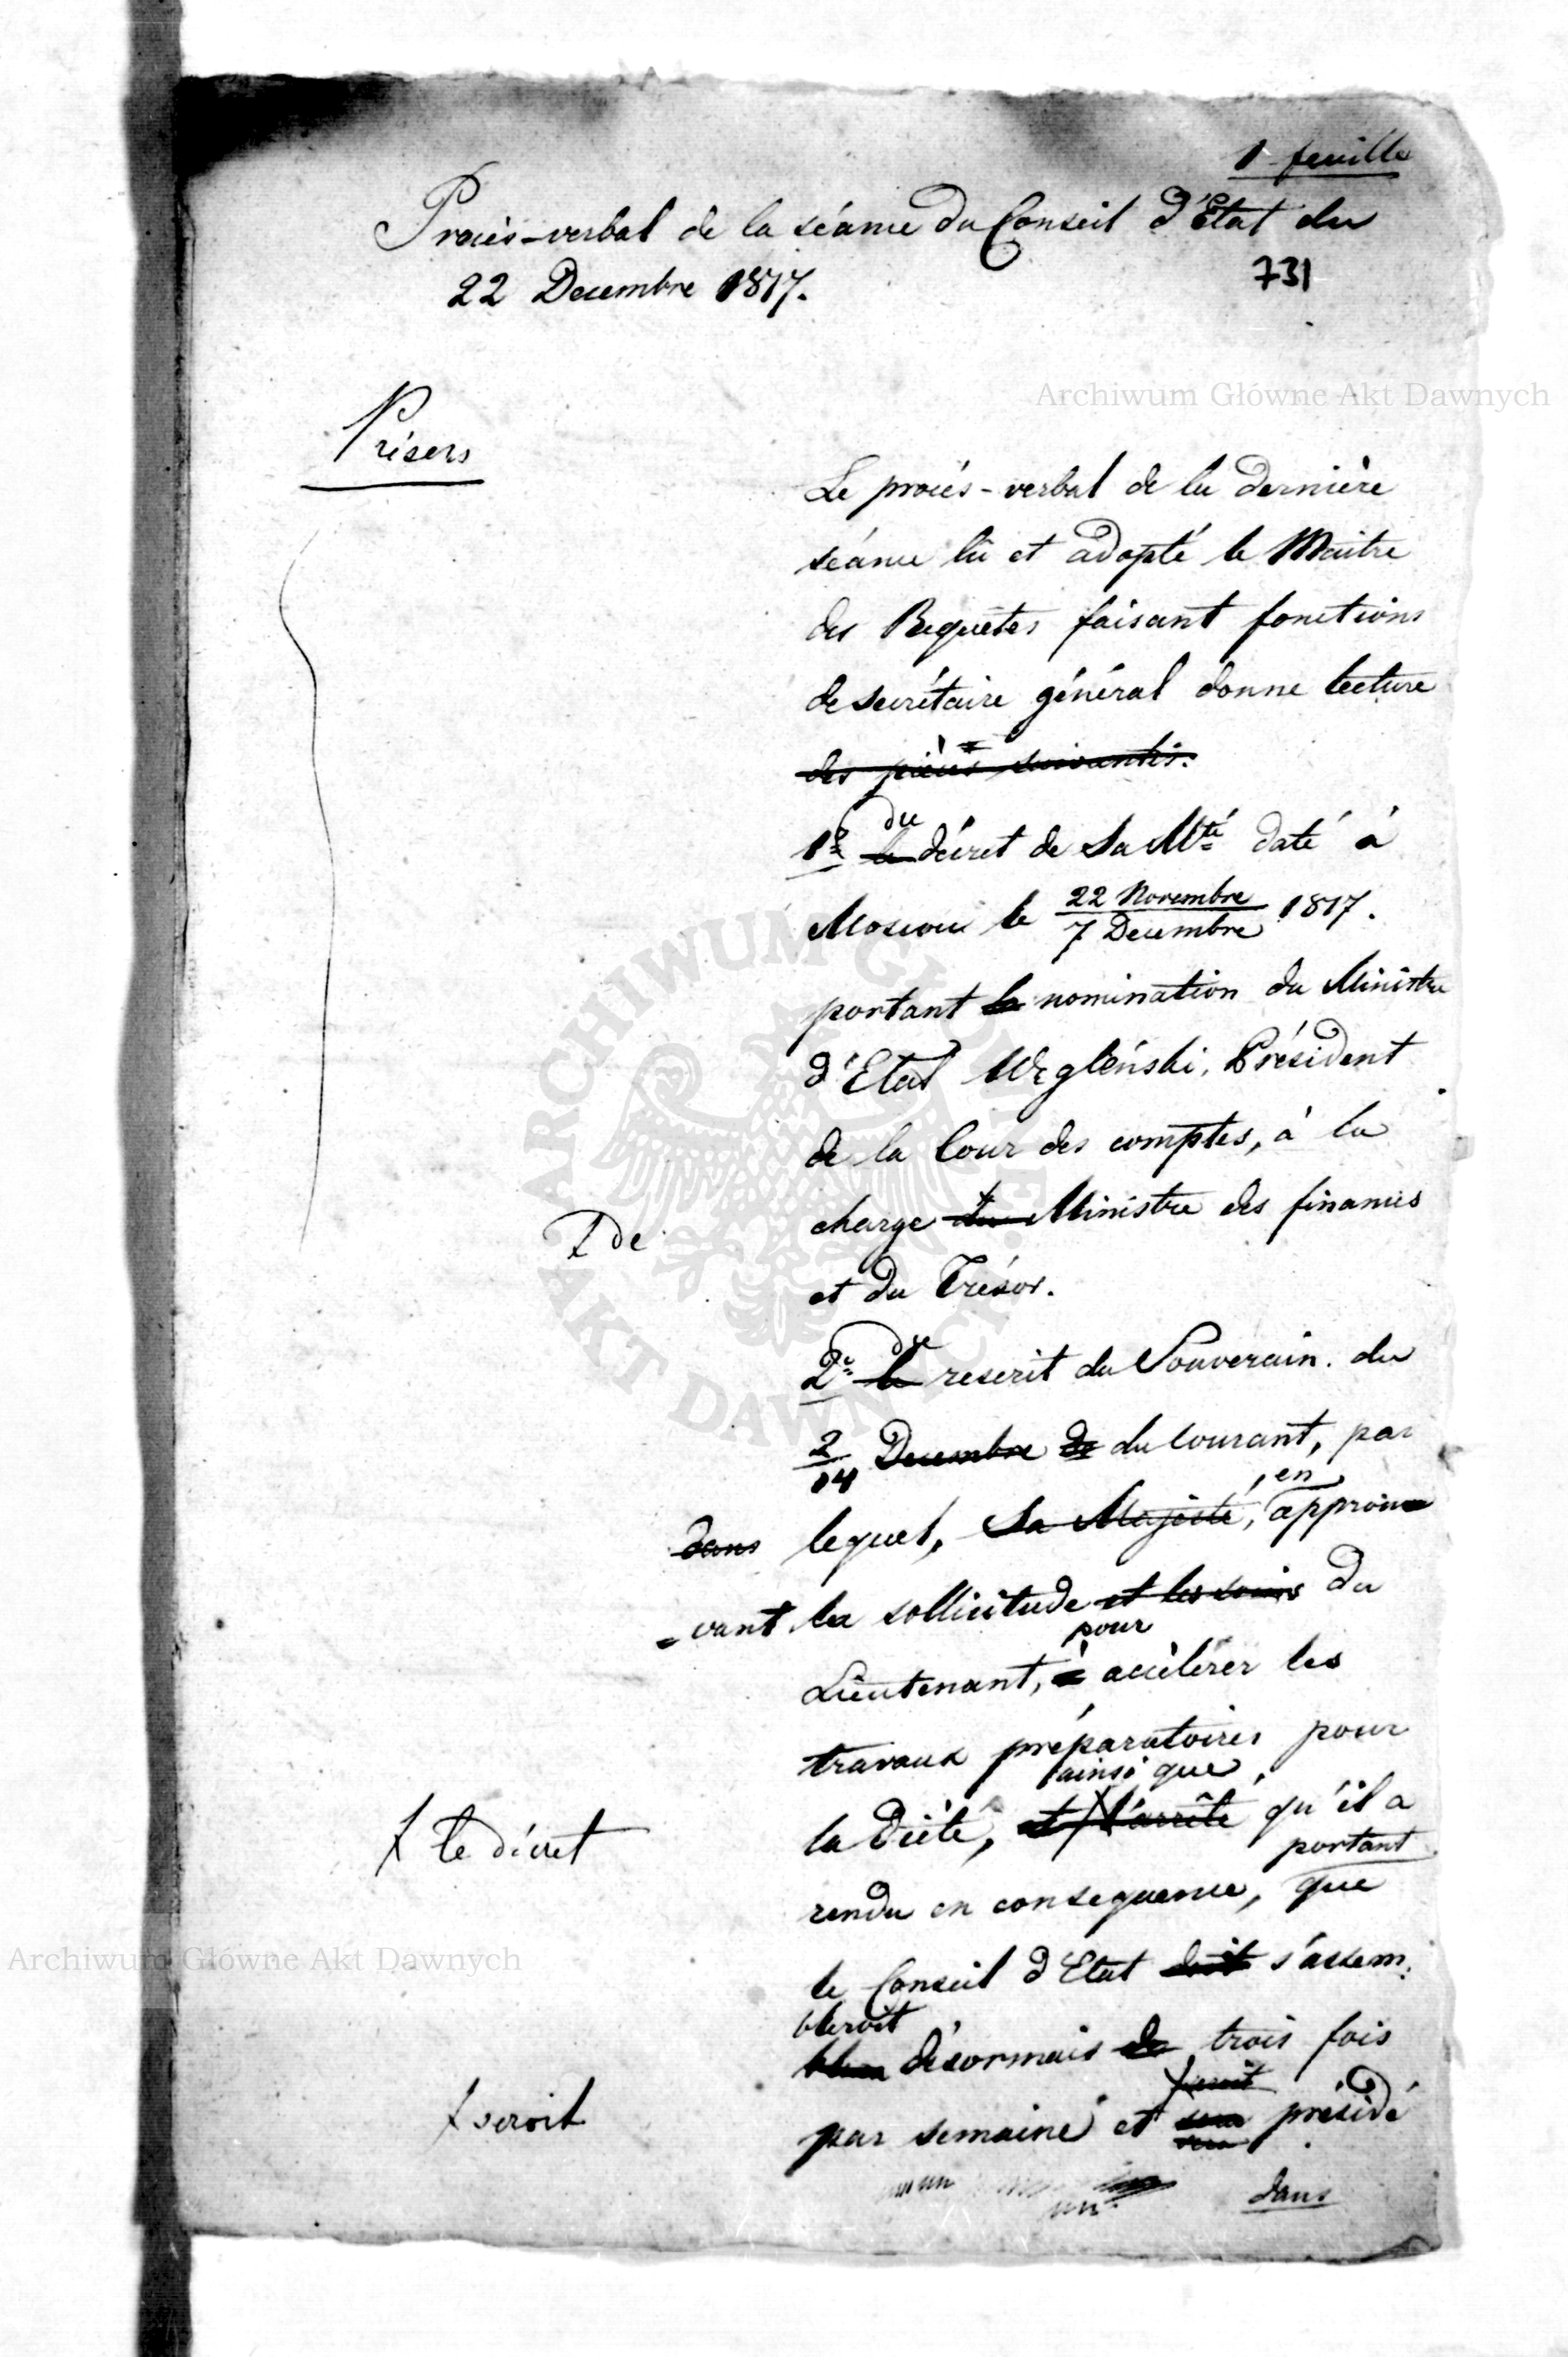 1 feuille
Procès-verbal de la séance du Conseil d'Etat du
22 Decembre 1817.
731
Archiwum Główne Akt Dawnych
Présens
Le procès-verbal de la dernière
séance lû et adopté le Maitre
des Requêtes faisant fonctions
de secrétaire général donne lecture
des pièces suivantes.
du
1º le décret de Sa Mté daté à
Moscou le 22 Novembre / 7 Decembre 1817.
portant la nomination du Ministre
d'Etat Węgleński, Président
de la Cour des comptes, à la
charge du Ministre des finances
de
et du Trésor.
du
2º le rescrit du Souverain du
2/14 Decembre de du courant, par
en
dans lequel, Sa Majesté, approu
=vant la sollicitude et les soins du
pour
Lieutenant, à accélérer les
travaux préparatoires pour
ainsi que
la Diète, et l'arrêté qu'il a
le décret
portant
rendu en consequence, que
le Conseil d'Etat doit s'assem
Archiwum Główne Akt Dawnych
bleroit
blera désormais de trois fois
seroit
par semaine et sera présidé
seroit
dans
ARCHIWUM GŁÓWNE AKT DAWNYCH